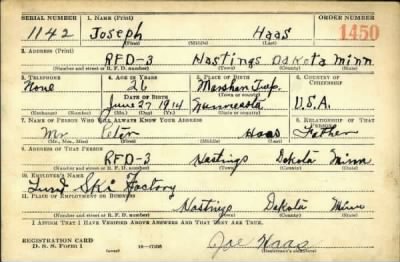 SERIAL NUMBER 1. NAME (Print) ORDER NUMBER
1142 Joseph Haas 1450
(First) (Middle) (Last)
2. ADDRESS (Print)
RFD-3 Hastings Dakota Minn
(Number and street or R. F. D. number) (Town) (County) (State)
3. TELEPHONE 4. AGE IN YEARS 5. PLACE OF BIRTH 6. COUNTRY OF CITIZENSHIP
None 26 Marshan Twp. U.S.A.
DATE OF BIRTH (Town or county)
June 27 1914 Minnesota
(Exchange) (Number) (Mo.) (Day) (Yr.) (State or country)
7. NAME OF PERSON WHO WILL ALWAYS KNOW YOUR ADDRESS 8. RELATIONSHIP OF THAT PERSON
Mr Peter Haas Father
(Mr., Mrs., Miss) (First) (Middle) (Last)
9. ADDRESS OF THAT PERSON
RFD-3 Hastings Dakota Minn
(Number and street or R. F. D. number) (Town) (County) (State)
10. EMPLOYER'S NAME
Lund Ski Factory
11. PLACE OF EMPLOYMENT OR BUSINESS
Hastings Dakota Minn
(Number and street or R. F. D. number) (Town) (County) (State)
I AFFIRM THAT I HAVE VERIFIED ABOVE ANSWERS AND THAT THEY ARE TRUE.
REGISTRATION CARD
D. S. S. Form 1
Joe Haas
(Registrant's signature)